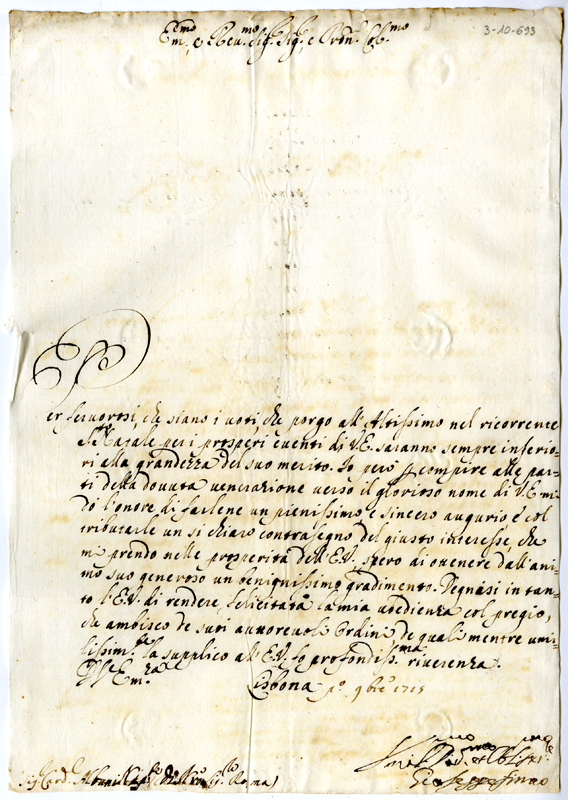 3-10-693
Em.mo e Rev.mo Sig.r Sig.r e Pron. Col.mo
Per fervorosi, che siano i voti che porgo all'Altissimo nel ricorrente
S. Natale per i prosperi eventi di V.E. saranno sempre inferio-
ri alla grandezza del suo merito. Io però p compire alle par-
ti della dovuta venerazione verso il glorioso nome di V.E. mi
dò l'onore di farlene un pienissimo e sincero augurio e col
tributarle un sì chiaro contrasegno del giusto interesse, che
mi prendo nelle prosperità dell'E.V. spero di ottenere dall'ani-
mo suo generoso un benignissimo gradimento. Degnasi in tan-
to l'E.V. di rendere felicitata la mia ubedienza col pregio,
che ambisco de suoi autorevoli Ordini, de quali mentre umi-
lissim.te la supplico all'E.V. fo profondiss.ma riverenza.
Di V. Em.za
Lisbona p.o 9bre 1715
Sig.r Card. Albani Roma